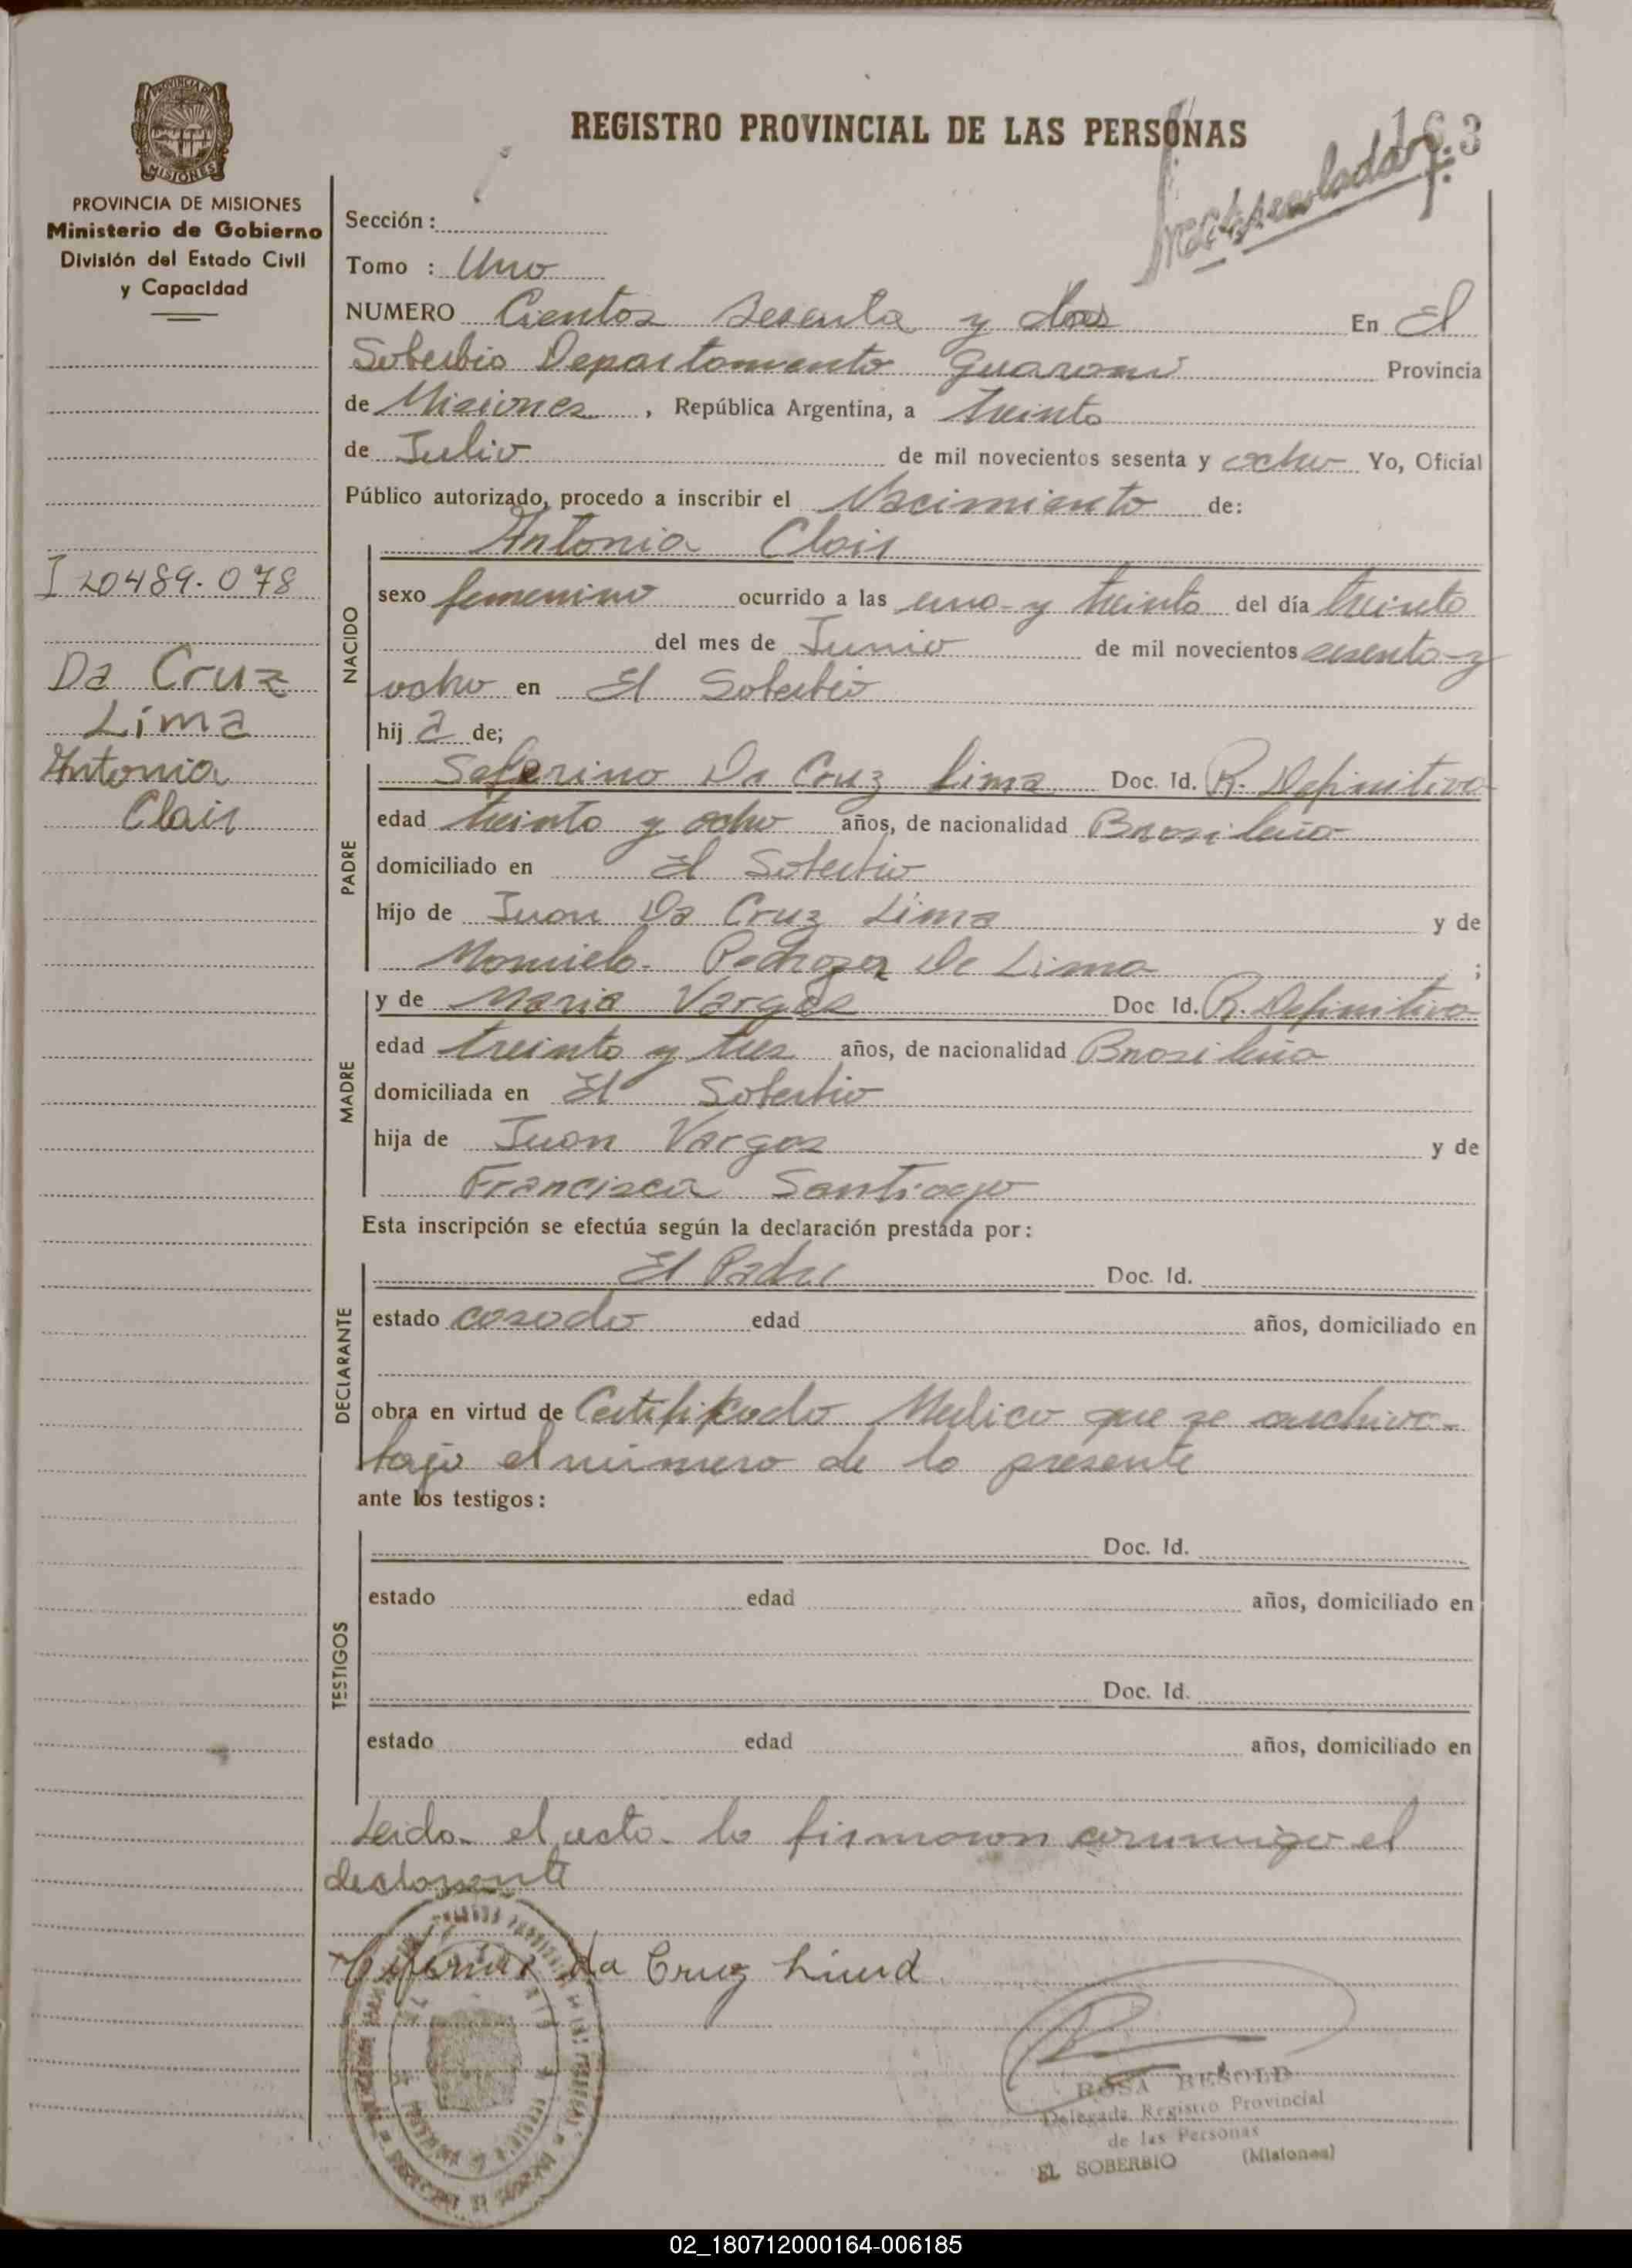 163
REGISTRO PROVINCIAL DE LAS PERSONAS
PROVINCIA DE MISIONES
Ministerio de Gobierno
División del Estado Civil
y Capacidad
I 20489.078
Da Cruz
Lima
Antonia
Clair
Sección :
Tomo : Uno
NUMERO Cientos sesenta y dos En El
Soberbio Departamento Guarani Provincia
de Misiones , República Argentina, a treinta
de Julio de mil novecientos sesenta y ocho Yo, Oficial
Público autorizado, procedo a inscribir el Nacimiento de:
NACIDO
Antonia Clair
sexo femenino ocurrido a las uno y treinta del día treinta
del mes de Junio de mil novecientos sesenta y
ocho en El Soberbio
hij a de;
PADRE
Seferino Da Cruz Lima Doc. Id. R. Definitiva
edad treinta y ocho años, de nacionalidad Brasileña
domiciliado en El Soberbio
hijo de Juan Da Cruz Lima y de
Pedrozer De Lima ;
MADRE
y de Maria Vargas Doc Id. R. Definitiva
edad treinta y tres años, de nacionalidad Brasileña
domiciliada en El Soberbio
hija de Juan Vargas y de
Francisca Santiago
Esta inscripción se efectúa según la declaración prestada por:
DECLARANTE
El Padre Doc. Id.
estado casado edad años, domiciliado en
obra en virtud de Certificado Medico que se archiva
bajo el número de la presente
ante los testigos:
TESTIGOS
Doc. Id.
estado edad años, domiciliado en
Doc. Id.
estado edad años, domiciliado en
Leida el acta la firmaron conmigo el
declarante
da Cruz Lima
ROSA BESOLD
Delegada Registro Provincial
de las Personas
EL SOBERBIO (Misiones)
02_180712000164-006185